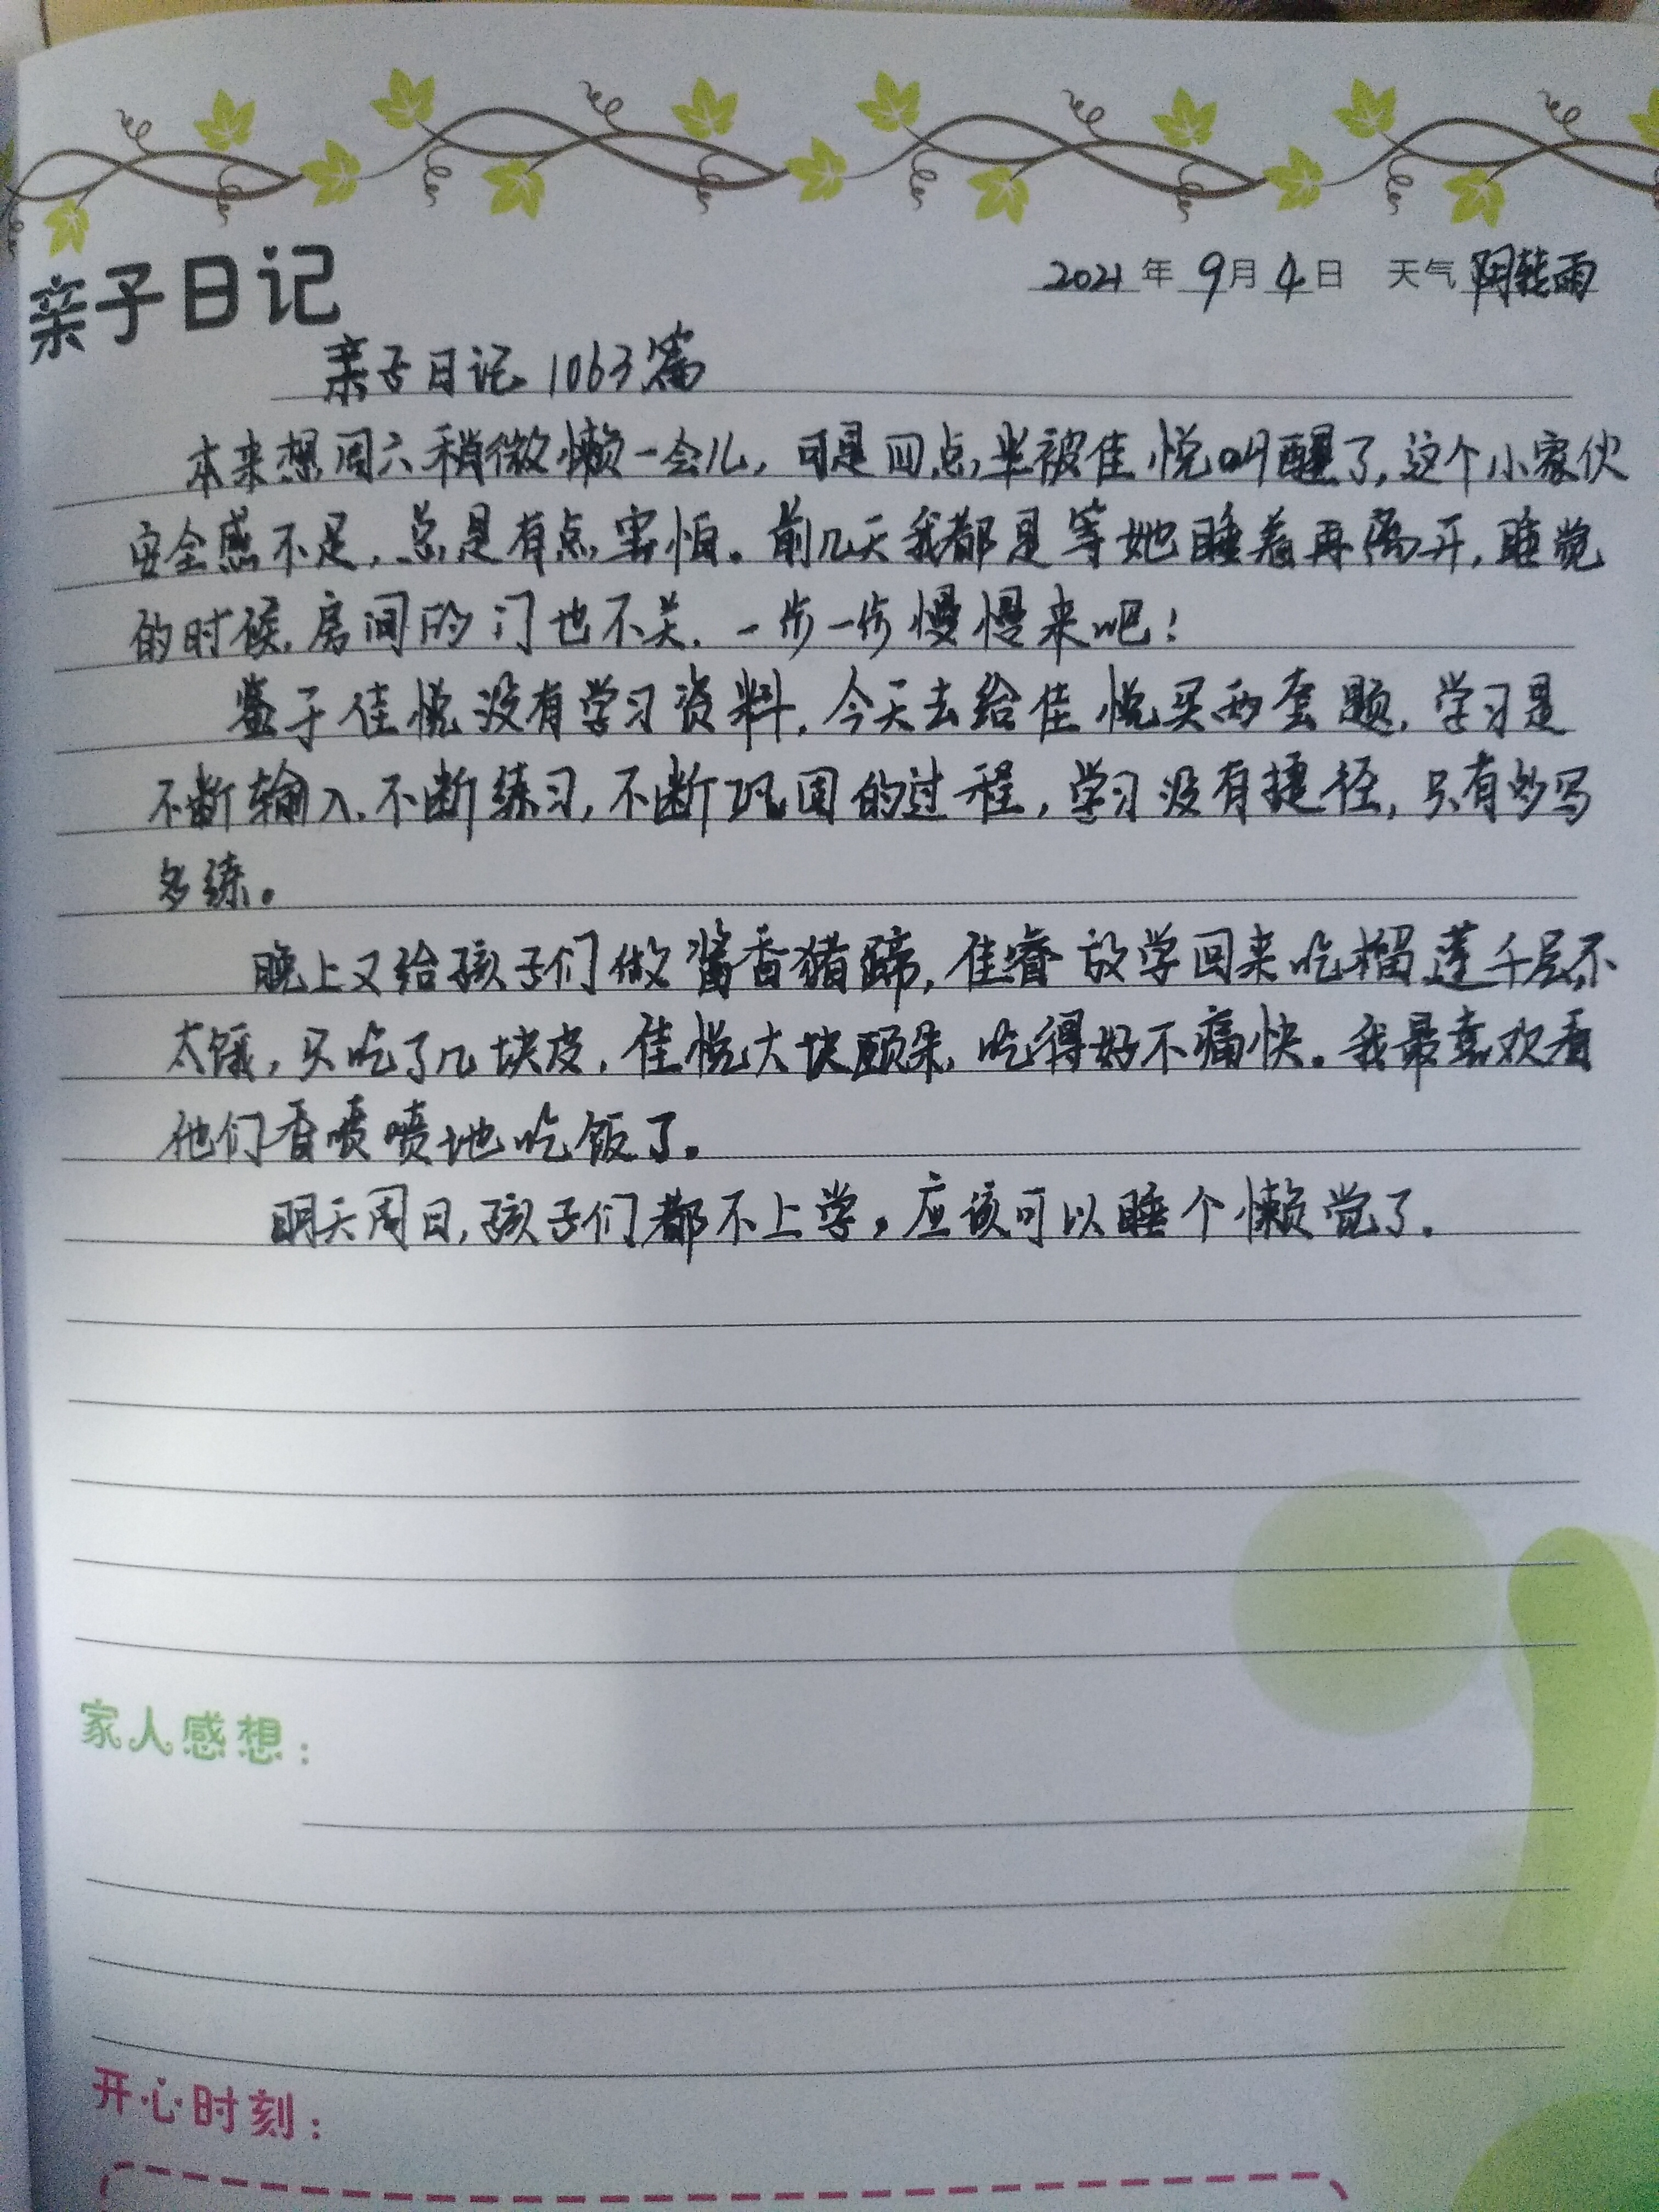 亲子日记
2021年9月4日 天气 阴转雨
亲子日记1063篇
本来想周六稍微懒一会儿,可是四点半被佳悦叫醒了,这个小家伙
安全感不足,总是有点害怕。前几天我都是等她睡着再离开,睡觉
的时候,房间的门也不关,一步一步慢慢来吧!
鉴于佳悦没有学习资料,今天去给佳悦买两套题,学习是
不断输入、不断练习,不断巩固的过程,学习没有捷径,只有多写
多练。
晚上又给孩子们做酱香猪蹄,佳睿放学回来吃榴莲千层不
太饿,只吃了几块皮,佳悦大块朵颐,吃得好不痛快。我最喜欢看
他们香喷喷地吃饭了。
明天周日,孩子们都不上学,应该可以睡个懒觉了。
家人感想:
开心时刻: